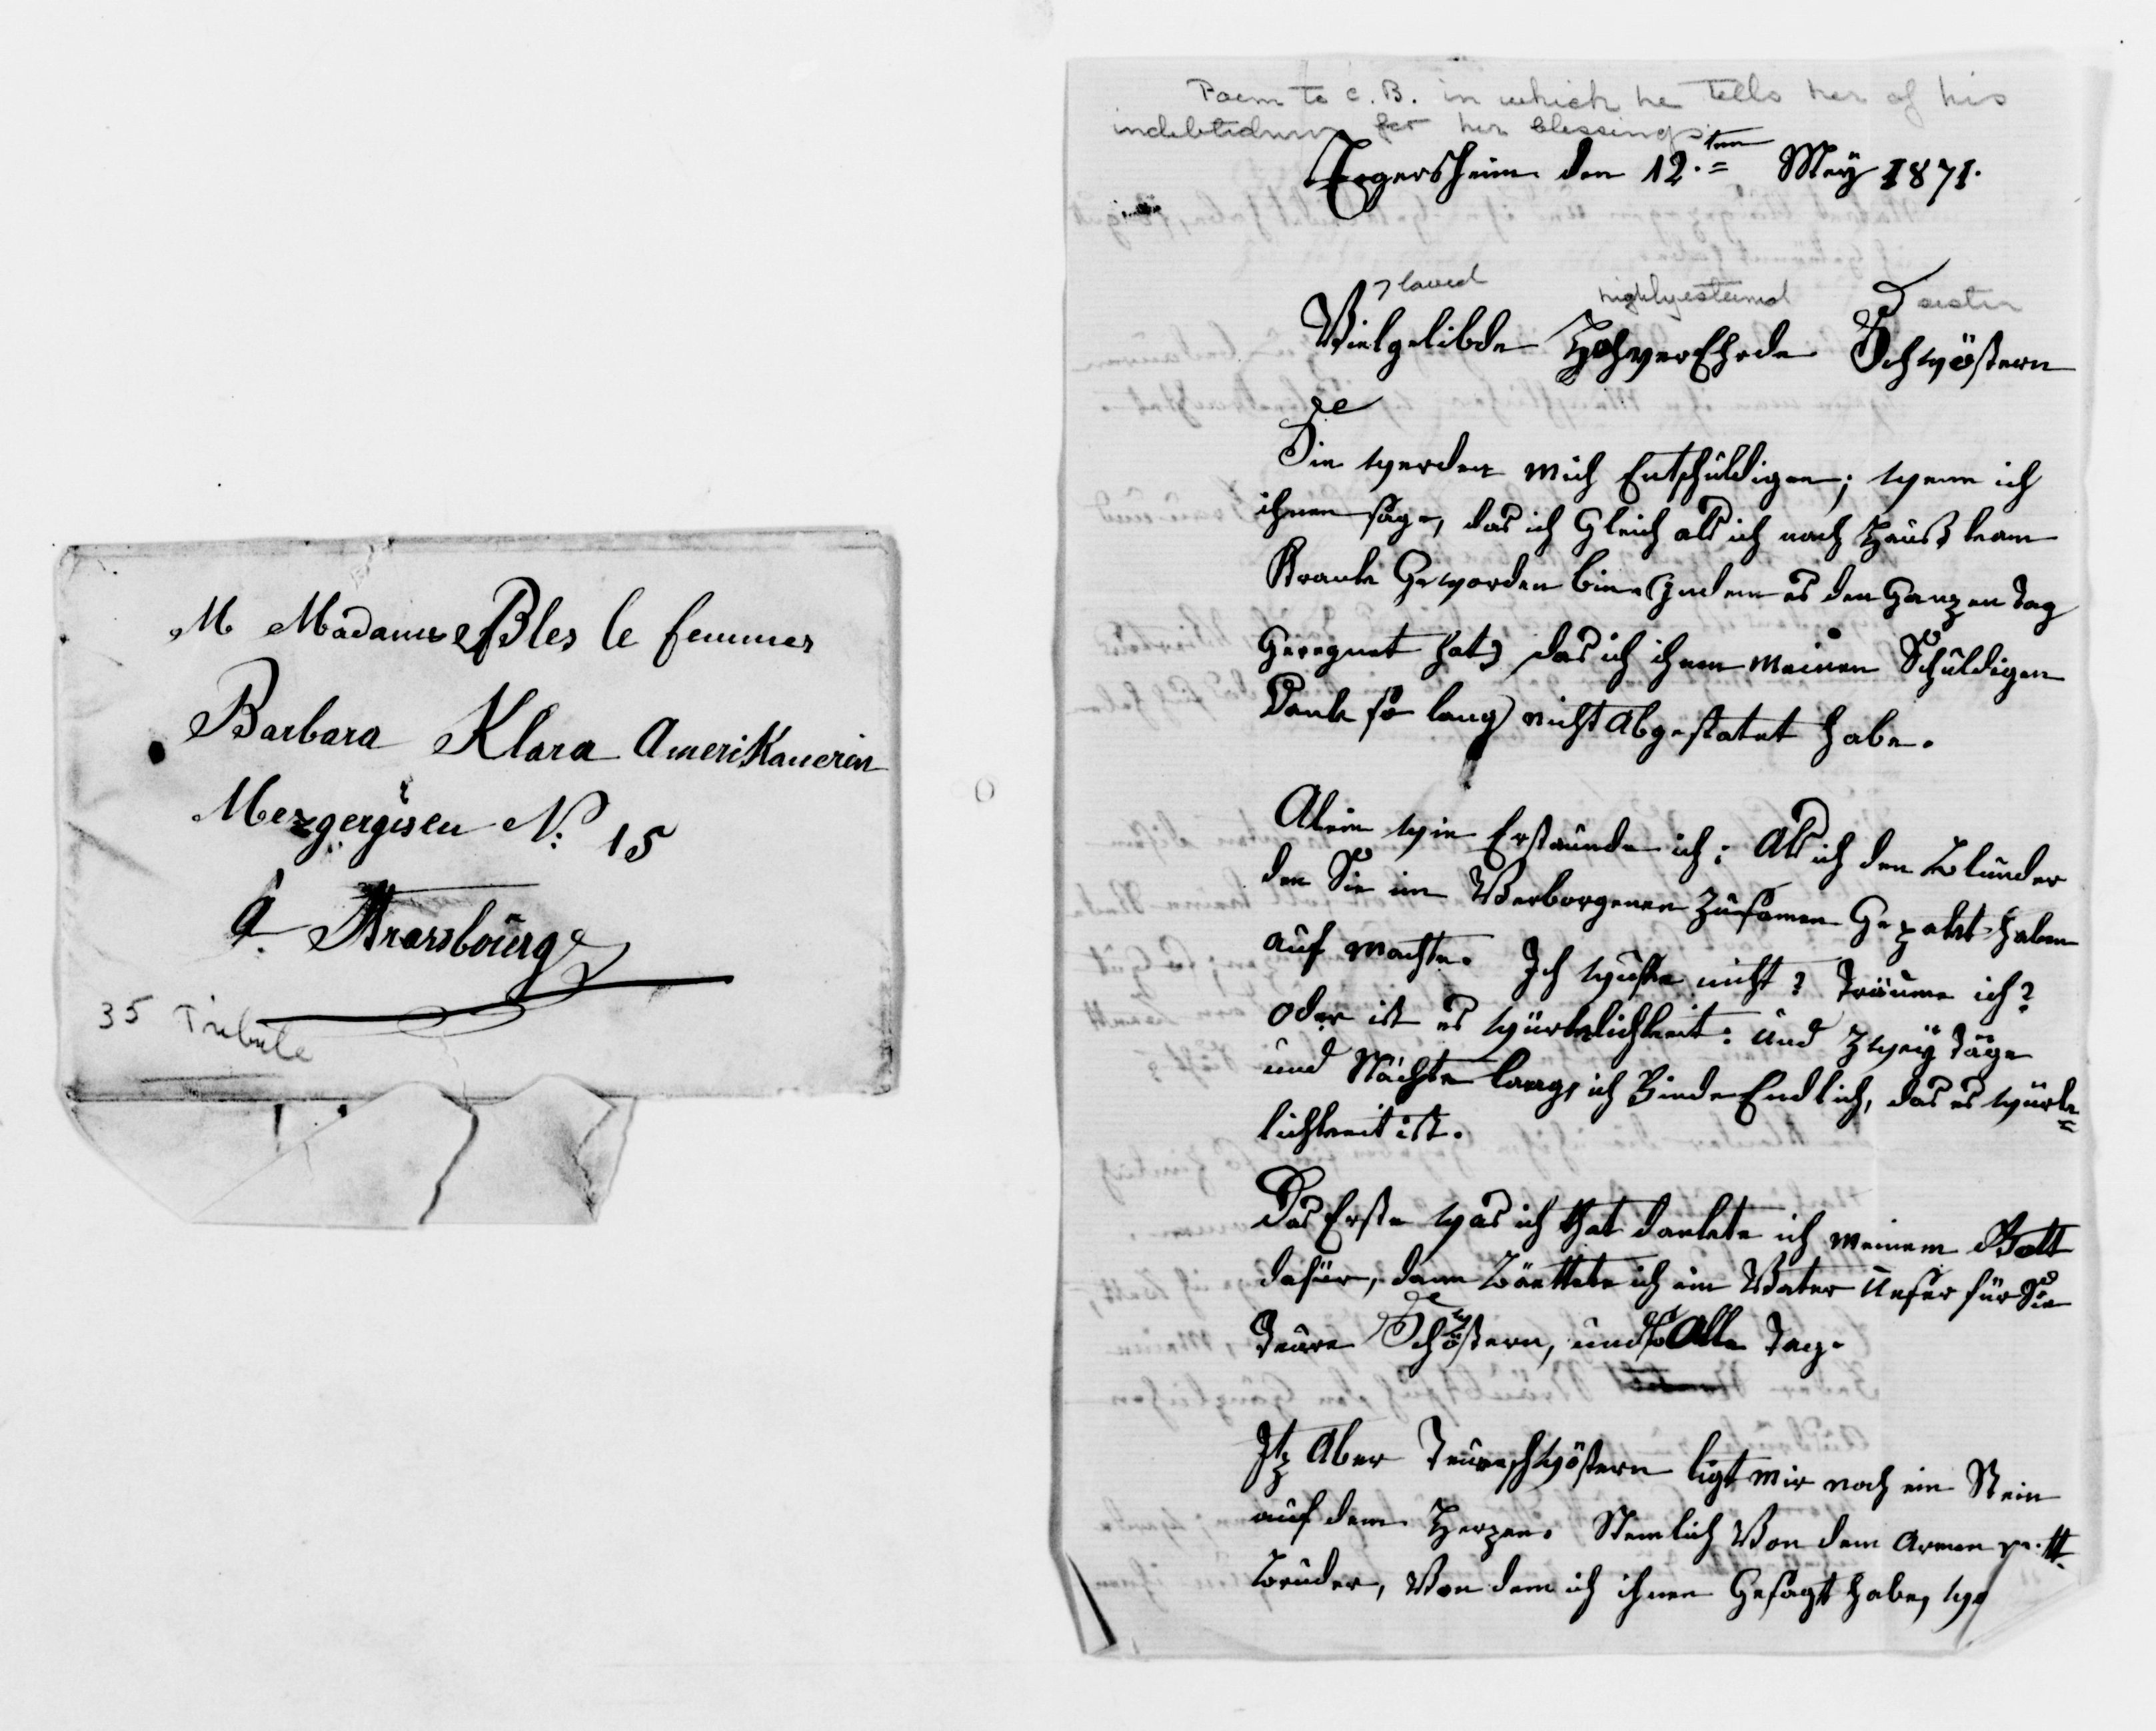 M Madame Bles le femmes
Barbara Klara Amerikanerin
Mezgergisen N. 15
à Strarsbourg
35 Tribute
Poem to C.B. in which he tells her of his
indebtedness for her blessings.
Ergersheim den 12.ten Meÿ 1871.
loved highly esteemed sister
Vielgelibde HochverEhrde Schwöstern
Sie werden mich Entschuldigen; wenn ich
ihnen sage, das ich Gleich als ich nach Hauß kam
Krank Geworden bin (indem es den Ganzen Tag
Geregnet hat) das ich ihnen meinen Schuldigen
Dank so lang nicht Abgestatet habe.
Alein wie Erstaunde ich: Als ich den Blunder
den Sie im Verborgenen zusamen Gepakt haben
auf machte. Ich wuste nicht? Träume ich?
oder ist es würklichkeit: und zweÿ Täge
und Nächte lang, ich Finde Endlich, das es würk=
lichkeit ist.
Das Erste was ich that dankte ich meinem Gott
dafür, dann bäettete ich ein Vater Unser für Sie
Teure Schwöstern, und so Alle Tag.
Itz Aber Teure schwöstern ligt mir noch ein Stein
auf dem Herzen. Nemlich Von dem Armen
Bruder, Von dem ich ihnen Gesagt habe,